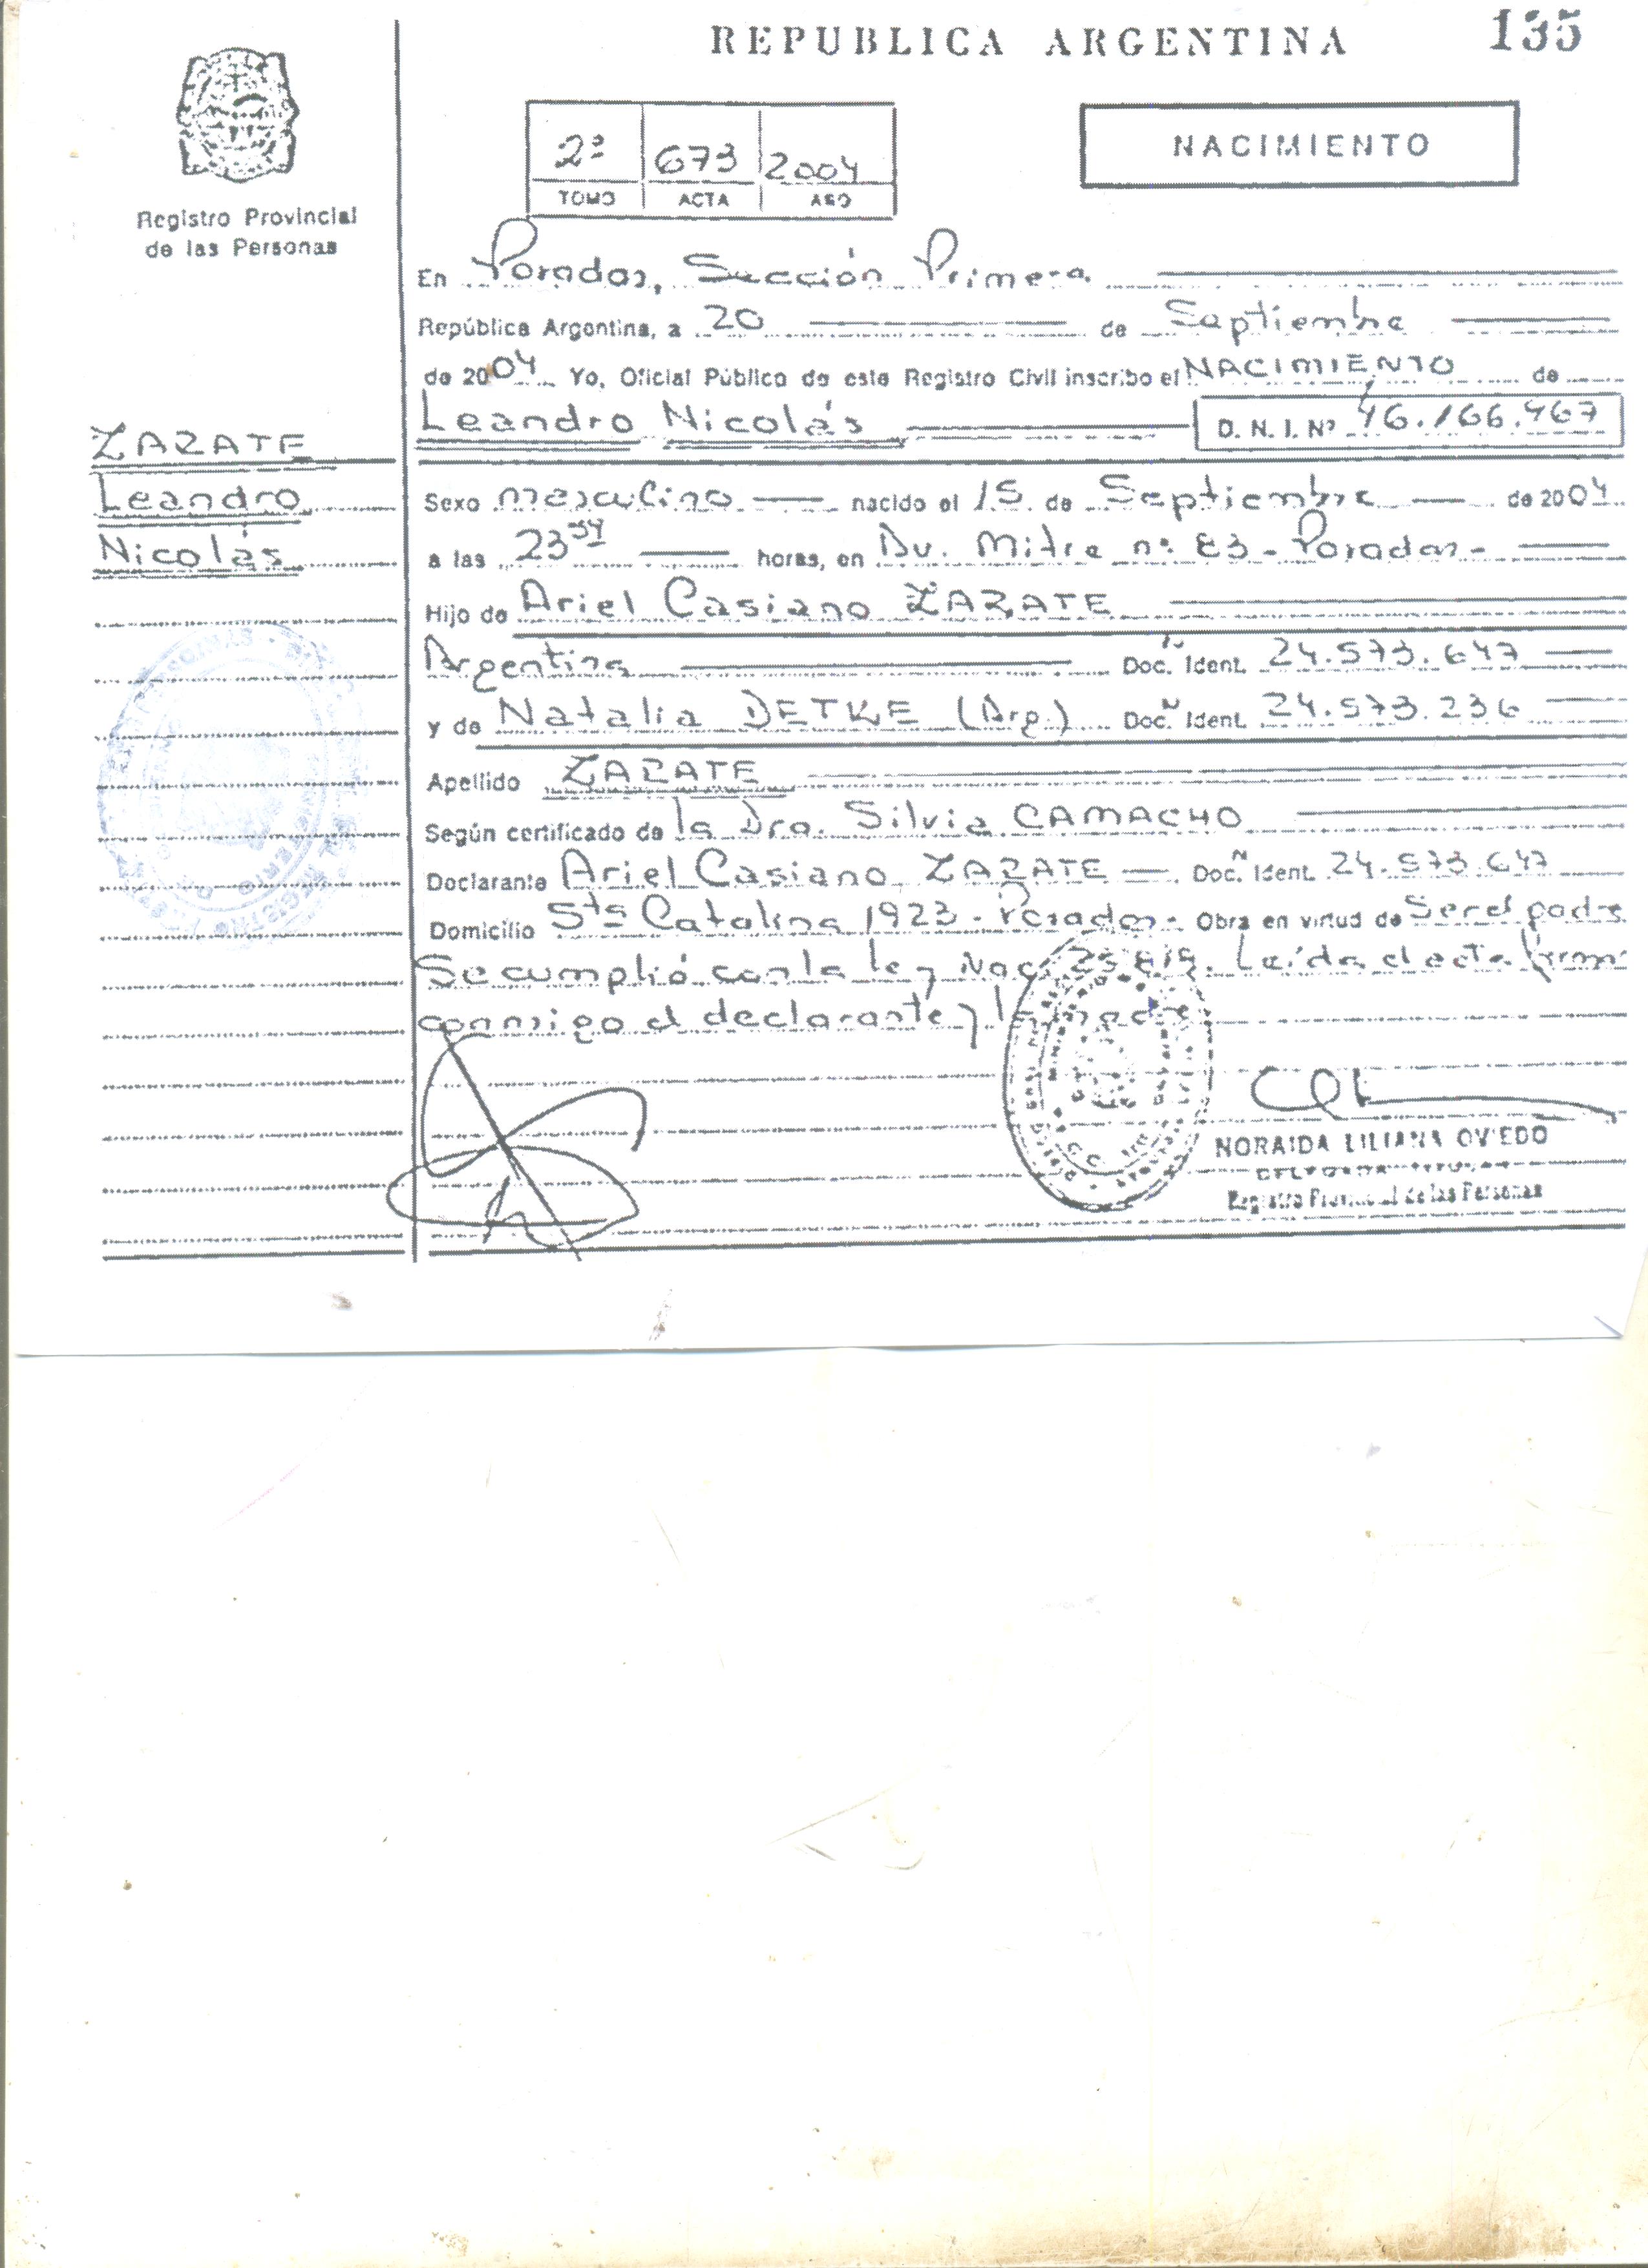 REPUBLICA ARGENTINA
135
NACIMIENTO
2º 673 2004
TOMO ACTA AÑO
Registro Provincial
de las Personas
En Posadas, Sección Primera
República Argentina, a 20 de Septiembre
de 2004 Yo, Oficial Público de este Registro Civil inscribo el NACIMIENTO de
Leandro Nicolás D. N. I. Nº 46.166.467
ZARATE
Leandro
Nicolás
Sexo masculino nacido el 15 de Septiembre de 2004
a las 23 34 horas, en Av. Mitre nº 83 - Posadas -
Hijo de Ariel Casiano ZARATE
Argentina Doc. Nº Ident. 24.573.647
y de Natalia DETKE (Arg.) Doc. Nº Ident. 24.573.236
Apellido ZARATE
Según certificado de la Dra. Silvia CAMACHO
Declarante Ariel Casiano ZARATE Doc. Nº Ident. 24.573.647
Domicilio Sta Catalina 1923 - Posadas - Obra en virtud de Ser el padre
Se cumplió con la ley Nac. Leída el acta
conmigo el declarante y la madre
NORAIDA LILIANA OVIEDO
Registro Provincial de las Personas